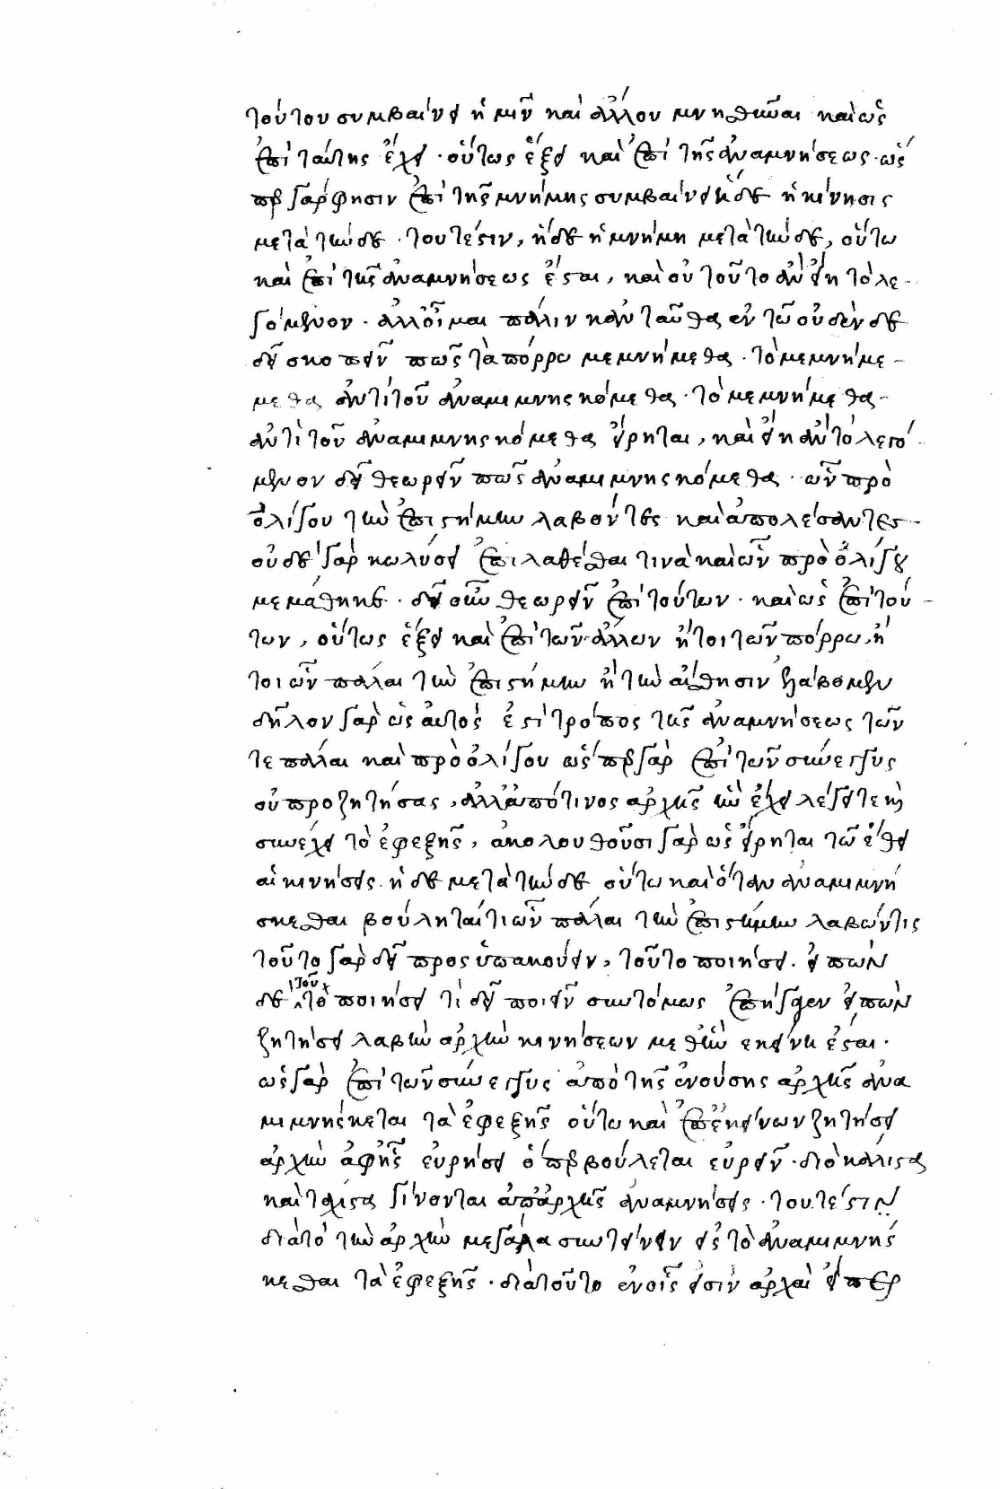 τούτου συμβαίνει ἡμῖν καὶ ἄλλου μνησθῆναι καὶ ὡς
ἐπὶ ταύτης ἔχει · οὕτως ἕξει καὶ ἐπὶ τῆς ἀναμνήσεως · ὡς
περ γάρ φησιν ἐπὶ τῆς μνήμης συμβαίνει ἥδε ἡ κίνησις
μετὰ τήνδε · τουτέστιν, ἥδε ἡ μνήμη μετὰ τήνδε, οὕτω
καὶ ἐπὶ τῆς ἀναμνήσεως ἔσται, καὶ οὐ τοῦτο ἂν εἴη τὸ λε-
γόμενον · ἀλλ' οἶμαι πάλιν κἀνταῦθα ἐν τῷ οὐδὲν δὲ
δεῖ σκοπεῖν πῶς τὰ πόρρω μεμνήμεθα · τὸ μεμνήμε-
μεθα ἀντὶ τοῦ ἀναμιμνησκόμεθα · τὸ μεμνήμεθα-
ἀντὶ τοῦ ἀναμιμνησκόμεθα εἴρηται, καὶ εἴη ἂν τὸ λεγό-
μενον δεῖ θεωρεῖν πῶς ἀναμιμνησκόμεθα · ὧν πρὸ
ὀλίγου τὴν ἐπιστήμην λαβόντες καὶ ἀπολέσαντες-
οὐδὲ γὰρ κωλύσει ἐπιλαθέσθαι τινὰ καὶ ὧν πρὸ ὀλίγου
μεμάθηκε · δεῖ οὖν θεωρεῖν ἐπὶ τούτων · καὶ ὡς ἐπὶ τού-
των, οὕτως ἕξει καὶ ἐπὶ τῶν ἄλλων ἤτοι τῶν πόρρω, ἤ
τοι ὧν πάλαι τὴν ἐπιστήμην ἢ τὴν αἴσθησιν ἐλάβομεν
δῆλον γὰρ ὡς αὐτός ἐστι τρόπος τῆς ἀναμνήσεως τῶν
τε πάλαι καὶ πρὸ ὀλίγου ὥσπερ γὰρ ἐπὶ τῶν σύνεγγυς
οὐ προζητήσας, ἀλλ' ἀπό τινος ἀρχῆς ἣν ἔχει λέγεται
συνέχει τὸ ἐφεξῆς, ἀκολουθοῦσι γὰρ ὡς εἴρηται τῷ ἔθει
αἱ κινήσεις · ἥδε μετὰ τήνδε οὕτω καὶ ὅταν ἀναμιμνή
σκεσθαι βούληταί τι ὧν πάλαι τὴν ἐπιστήμην λαβών τις
τοῦτο γὰρ δεῖ προσυπακούειν, τοῦτο ποιήσει · εἰπὼν
δὲ τὸ τοῦτο ποιήσει τί δεῖ ποιεῖν συντόμως ἐπήγαγεν εἰπὼν
ζητήσει λαβεῖν ἀρχὴν κινήσεων μεθ' ἣν ἐκείνη ἔσται ·
ὡς γὰρ ἐπὶ τῶν σύνεγγυς ἀπὸ τῆς ἐνούσης ἀρχῆς ἀνα
μιμνήσκεται τὰ ἐφεξῆς οὕτω καὶ ἐπ' ἐκείνων ζητήσει
ἀρχὴν ἀφ' ἧς εὑρήσει ὅπερ βούλεται εὑρεῖν · διὸ κάλλιστα
καὶ τάχιστα γίνονται ἀπ' ἀρχῆς ἀναμνήσεις · τουτέστιν
διὰ τὸ τὴν ἀρχὴν μεγάλα συντείνειν εἰς τὸ ἀναμιμνήσ
κεσθαι τὰ ἐφεξῆς · διὰ τοῦτο ἐν οἷς εἰσιν ἀρχαὶ εἴπερ